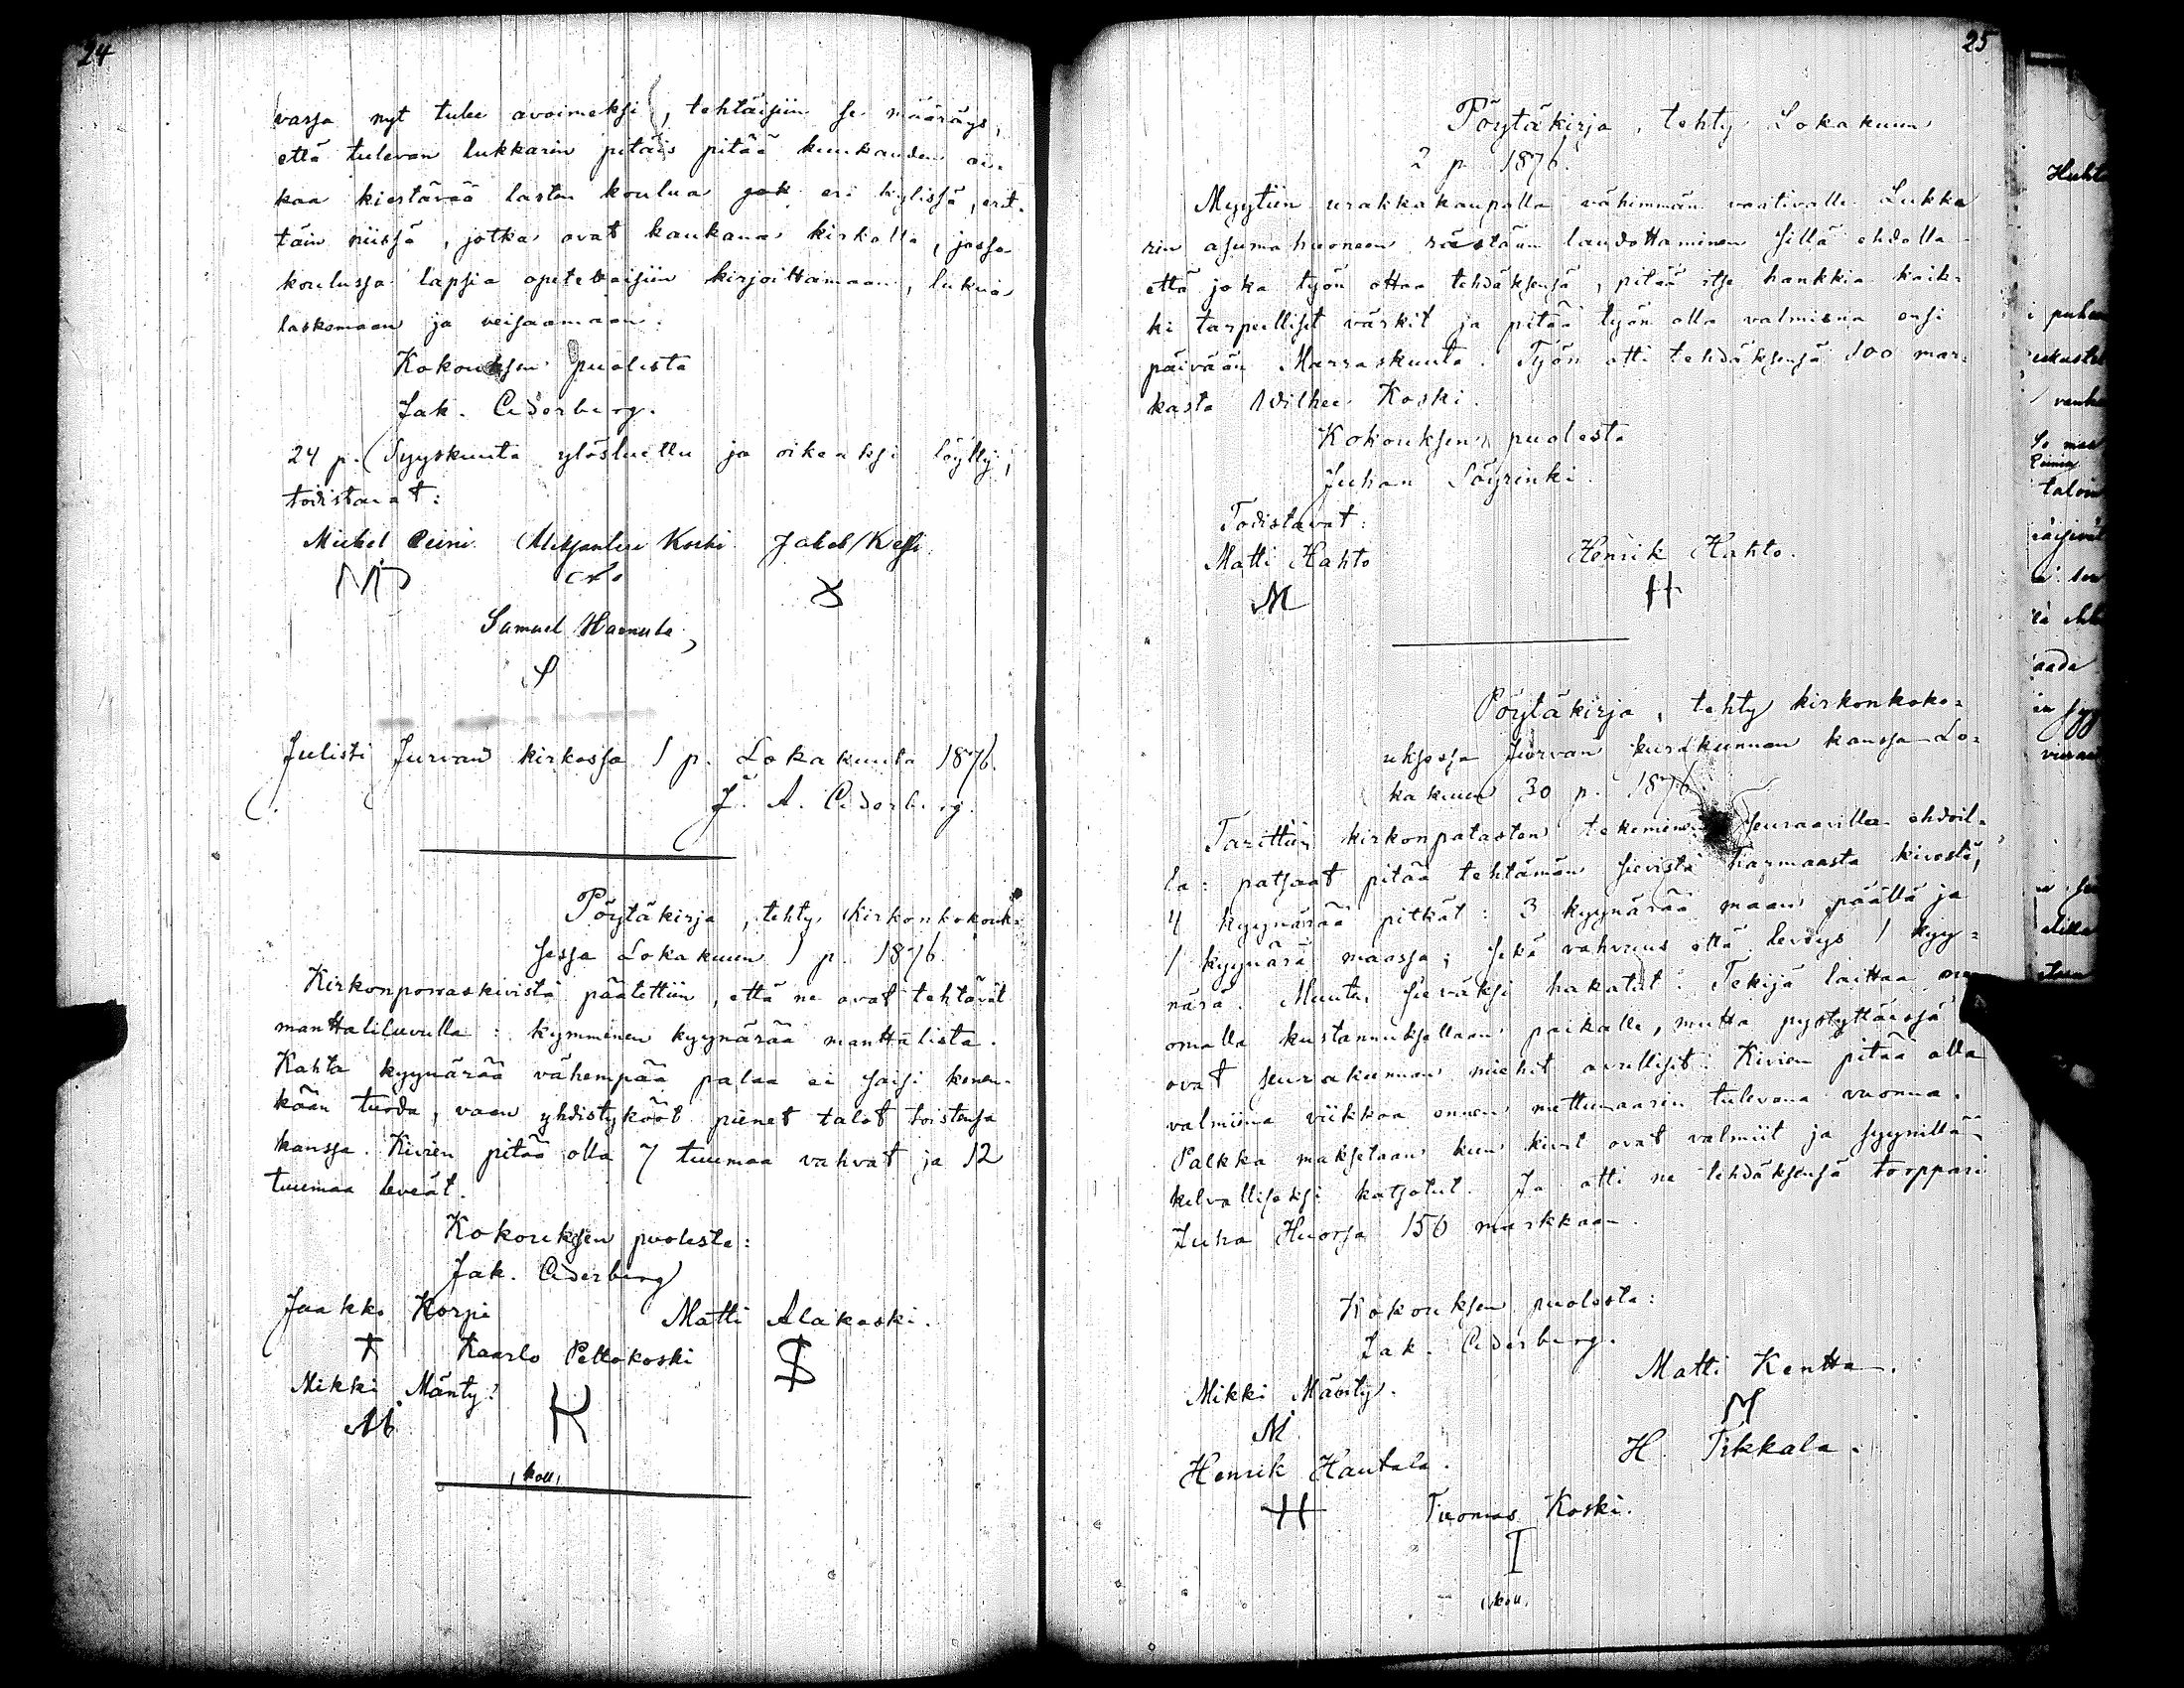 24
vassa nyt tulee avoimeksi, tehtäisiin se määräys,
että tulevan lukkarin pitäis pitää kuukauden ai-
kaa kiertävää lasten koulua eri kylissä, erit-
täin niissä, jotka ovat kaukana kirkolta, jossa
koulussa lapsia opetettaisiin kirjoittamaan, lukua
laskemaan ja veisaamaan.
Kokouksen puolesta
Jak. Cederberg.
24 p. Syyskuuta ylösluettu ja oikeaksi löytty,
todistavat:
Michel Jakob Kessi.
M
Samuel Hannula,
S
Julisti Jurvan kirkossa 1 p. Lokakuuta 1876.
J. A. Cederberg.
Pöytäkirja, tehty Kirkonkokouk-
sessa Lokakuun 1 p. 1876.
Kirkonporraskivistä päätettiin, että ne ovat tehtävät
manttaliluvulla: kymmenen kyynärää manttalista.
Kahta kyynärää vähempää palaa ei saisi kenen-
kään tuoda, vaan yhdistykööt pienet talot toistensa
kanssa. Kivien pitää olla 7 tuumaa vahvat ja 12
tuumaa leveät.
Kokouksen puolesta:
Jak. Cederberg
Jaakko Korpi Matti Alakoski.
Kaarlo Peltokoski
Mikki Mänty.
M K
koll.
25
Pöytäkirja, tehty Lokakuun
2 p. 1876.
Myytiin urakkakaupalla vähimmän vaativalle Lukka
rin asumahuoneen laudottaminen sillä ehdolla
että joka työn ottaa tehdäksensä, pitää itse hankkia kaik-
ki tarpeelliset värkit ja pitää työn olla valmiina ensi
päivään Marraskuuta. Työn otti tehdäksensä 100 mar-
kasta Wilhee Koski.
Kokouksen puolesta
Juhan Söyrinki.
Todistavat:
Matti Hahto Henrik Hahto.
M H
Pöytäkirja, tehty kirkonkoko-
uksessa Jurvan seurakunnan kanssa Lo-
kakuun 30 p. 1876.
Tarittiin kirkonpatasten tekeminen seuraavilla ehdoil-
la: patsaat pitää tehtämän sievistä harmaasta kivestä,
4 kyynärää pitkät: 3 kyynärää maan päällä ja
1 kyynärä maassa; sekä vahvuus että leveys 1 kyy-
närä. Muuten sieväksi hakatut. Tekijä laittaa ne
omalla kustannuksellaan paikalle, mutta pystyttäissä
ovat seurakunnan miehet avulliset. Kivien pitää olla
valmiina viikkoa ennen mettumaarin tulevana vuonna.
Palkka maksetaan kun kivet ovat valmiit ja syynillä
kelvolliseksi katsotut. Ja otti ne tehdäksensä torppari
Juha Huorsa 150 markkaan.
Kokouksen puolesta:
Jak. Cederberg.
Mikki Mänty. Matti Kentta.
M M
Henrik Hautala. H. Tikkala.
H Tuomas Koski.
I
koll.